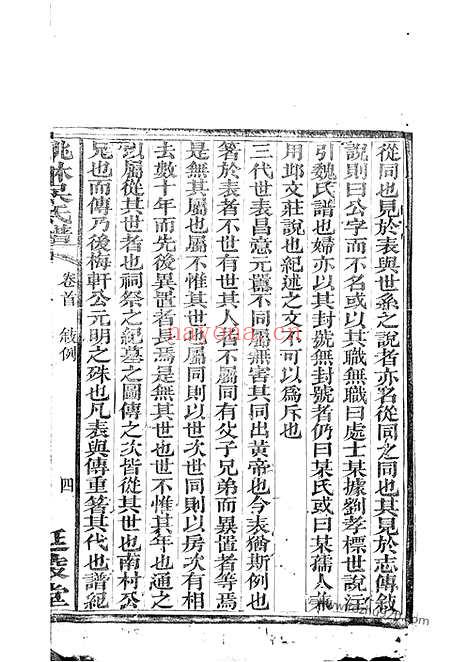 從同也見於表與世系之說者亦名從同之同也其見於志傳敘
說則曰公字而不名或以其職無職曰處士某據劉孝標世說注
引魏氏譜也婦亦以其封號無封號者仍曰某氏或曰某孺人兼
用邱文莊說也紀述之文不可以爲斥也
三代世表昌意元囂不同屬無害其同出黃帝也今表猶斯例也
箸於表者不世有其人者不屬同有父子兄弟而異置者等焉
是無其屬也屬不惟其世屬同則以世次世同則以房次有
去數十年而先後異置者長焉是無其世也世不惟其年也通之
以屬從其世者也祠祭之紀墓之圖傳之次皆從其世也南村公
兄也而傳乃後梅軒公元明之殊也凡表與傳重箸其代也譜紀
姚林吳氏譜 卷首 敘例 四 延陵堂
nayona.cn